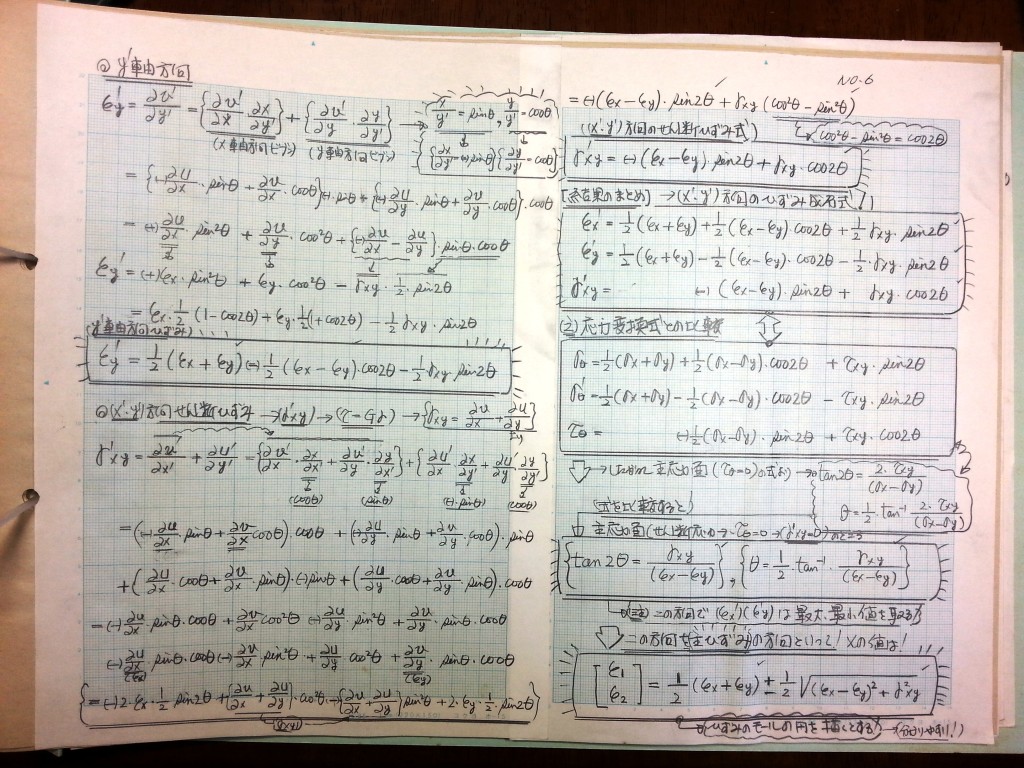 ◎ y'軸方向
εy' = ∂v'/∂y' = {∂v'/∂x · ∂x/∂y'} + {∂v'/∂y · ∂y/∂y'} → x/y' = sinθ, y/y' = cosθ
(x軸方向セブン) (y軸方向セブン) {∂x/∂y' = (-)sinθ}{∂y/∂y' = cosθ}
= {(-)∂u/∂x · sinθ + ∂v/∂x · cosθ}(-)sinθ + {(-)∂u/∂y · sinθ + ∂v/∂y · cosθ} · cosθ
= (-)∂u/∂x · sin²θ + ∂v/∂y · cos²θ + {(-)∂v/∂x - ∂u/∂y} · sinθ · cosθ
εy' = (+)εx · sin²θ + εy · cos²θ - γxy · 1/2 · sin2θ
= εx · 1/2 (1-cos2θ) + εy · 1/2 (1+cos2θ) - 1/2 γxy · sin2θ
(y'軸方向ひずみ)
εy' = 1/2 (εx + εy) (-) 1/2 (εx - εy) · cos2θ - 1/2 γxy · sin2θ
◎ (x'·y')方向せん断ひずみ → (γ'xy) → (τ=Gγ) → {γxy = ∂v/∂x + ∂u/∂y}
γ'xy = ∂v'/∂x' + ∂u'/∂y' = {∂v'/∂x · ∂x/∂x' + ∂v'/∂y · ∂y/∂x'} + {∂u'/∂x · ∂x/∂y' + ∂u'/∂y · ∂y/∂y'}
(cosθ) (sinθ) (-)sinθ (cosθ)
= ((-)∂u/∂x · sinθ + ∂v/∂x cosθ) · cosθ + ((-)∂u/∂y · sinθ + ∂v/∂y · cosθ) · sinθ
+ (∂u/∂x · cosθ + ∂v/∂x · sinθ) · (-)sinθ + (∂u/∂y · cosθ + ∂v/∂y · sinθ) · cosθ
= (-)∂u/∂x · sinθ · cosθ + ∂v/∂x · cos²θ (-)∂u/∂y · sin²θ + ∂v/∂y · sinθ · cosθ
(-)∂u/∂x · sinθ · cosθ (-)∂v/∂x · sin²θ + ∂u/∂y · cos²θ + ∂v/∂y · sinθ · cosθ
(εx) (εy)
{= (-)2 · εx · 1/2 sin2θ + {∂v/∂x + ∂u/∂y} · cos²θ - {∂v/∂x + ∂u/∂y} sin²θ + 2 · εy · 1/2 · sin2θ}
(γxy)
NO.6
= (-)(εx - εy) · sin2θ + γxy (cos²θ - sin²θ)
(cos²θ - sin²θ = cos2θ)
((x'·y')方向のせん断ひずみ式)
γ'xy = (-)(εx - εy) · sin2θ + γxy · cos2θ
[結果のまとめ] → (x'·y')方向のひずみ成分式!
εx' = 1/2 (εx + εy) + 1/2 (εx - εy) · cos2θ + 1/2 γxy · sin2θ
εy' = 1/2 (εx + εy) - 1/2 (εx - εy) · cos2θ - 1/2 · γxy · sin2θ
γ'xy = (-)(εx - εy) · sin2θ + γxy · cos2θ
(2) 応力変換式との比較
σθ = 1/2 (σx + σy) + 1/2 (σx - σy) · cos2θ + τxy · sin2θ
σθ' = 1/2 (σx + σy) - 1/2 (σx - σy) · cos2θ - τxy · sin2θ
τθ = (-)1/2 (σx - σy) · sin2θ + τxy · cos2θ
→ したがって主応力面(τθ=0)の式より → tan2θ = 2·τxy/(σx-σy)
θ = 1/2 · tan⁻¹ 2·τxy/(σx-σy)
(式を比較すると)
主応力面(せん断応力 → τθ=0 → γ'xy=0)のとき
{tan2θ = γxy/(εx-εy)}, {θ = 1/2 · tan⁻¹ · γxy/(εx-εy)}
(注) この方向で (εx')(εy') は最大、最小値を取る!
この方向を(主ひずみ)の方向といって! その値は!
[ε1 ε2] = 1/2 (εx + εy) ± 1/2 √(εx - εy)² + γ²xy
ひずみのモールの円を描くとする! → (分かりやすい!)